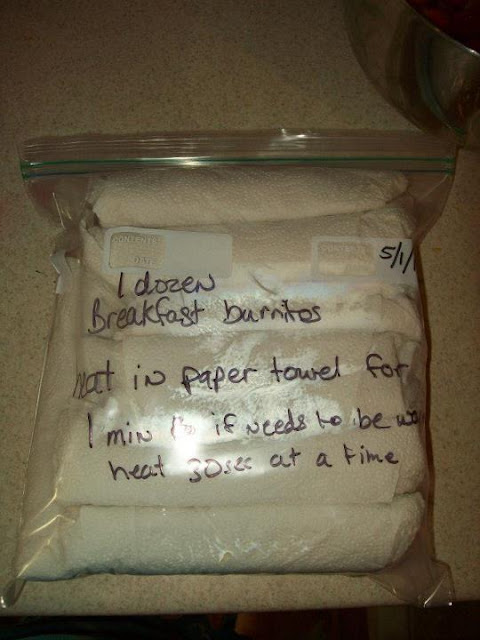 CONTENTS
DATE
5/1/
1 dozen
Breakfast burritos
heat in paper towel for
1 min if needs to be
heat 30sec at a time